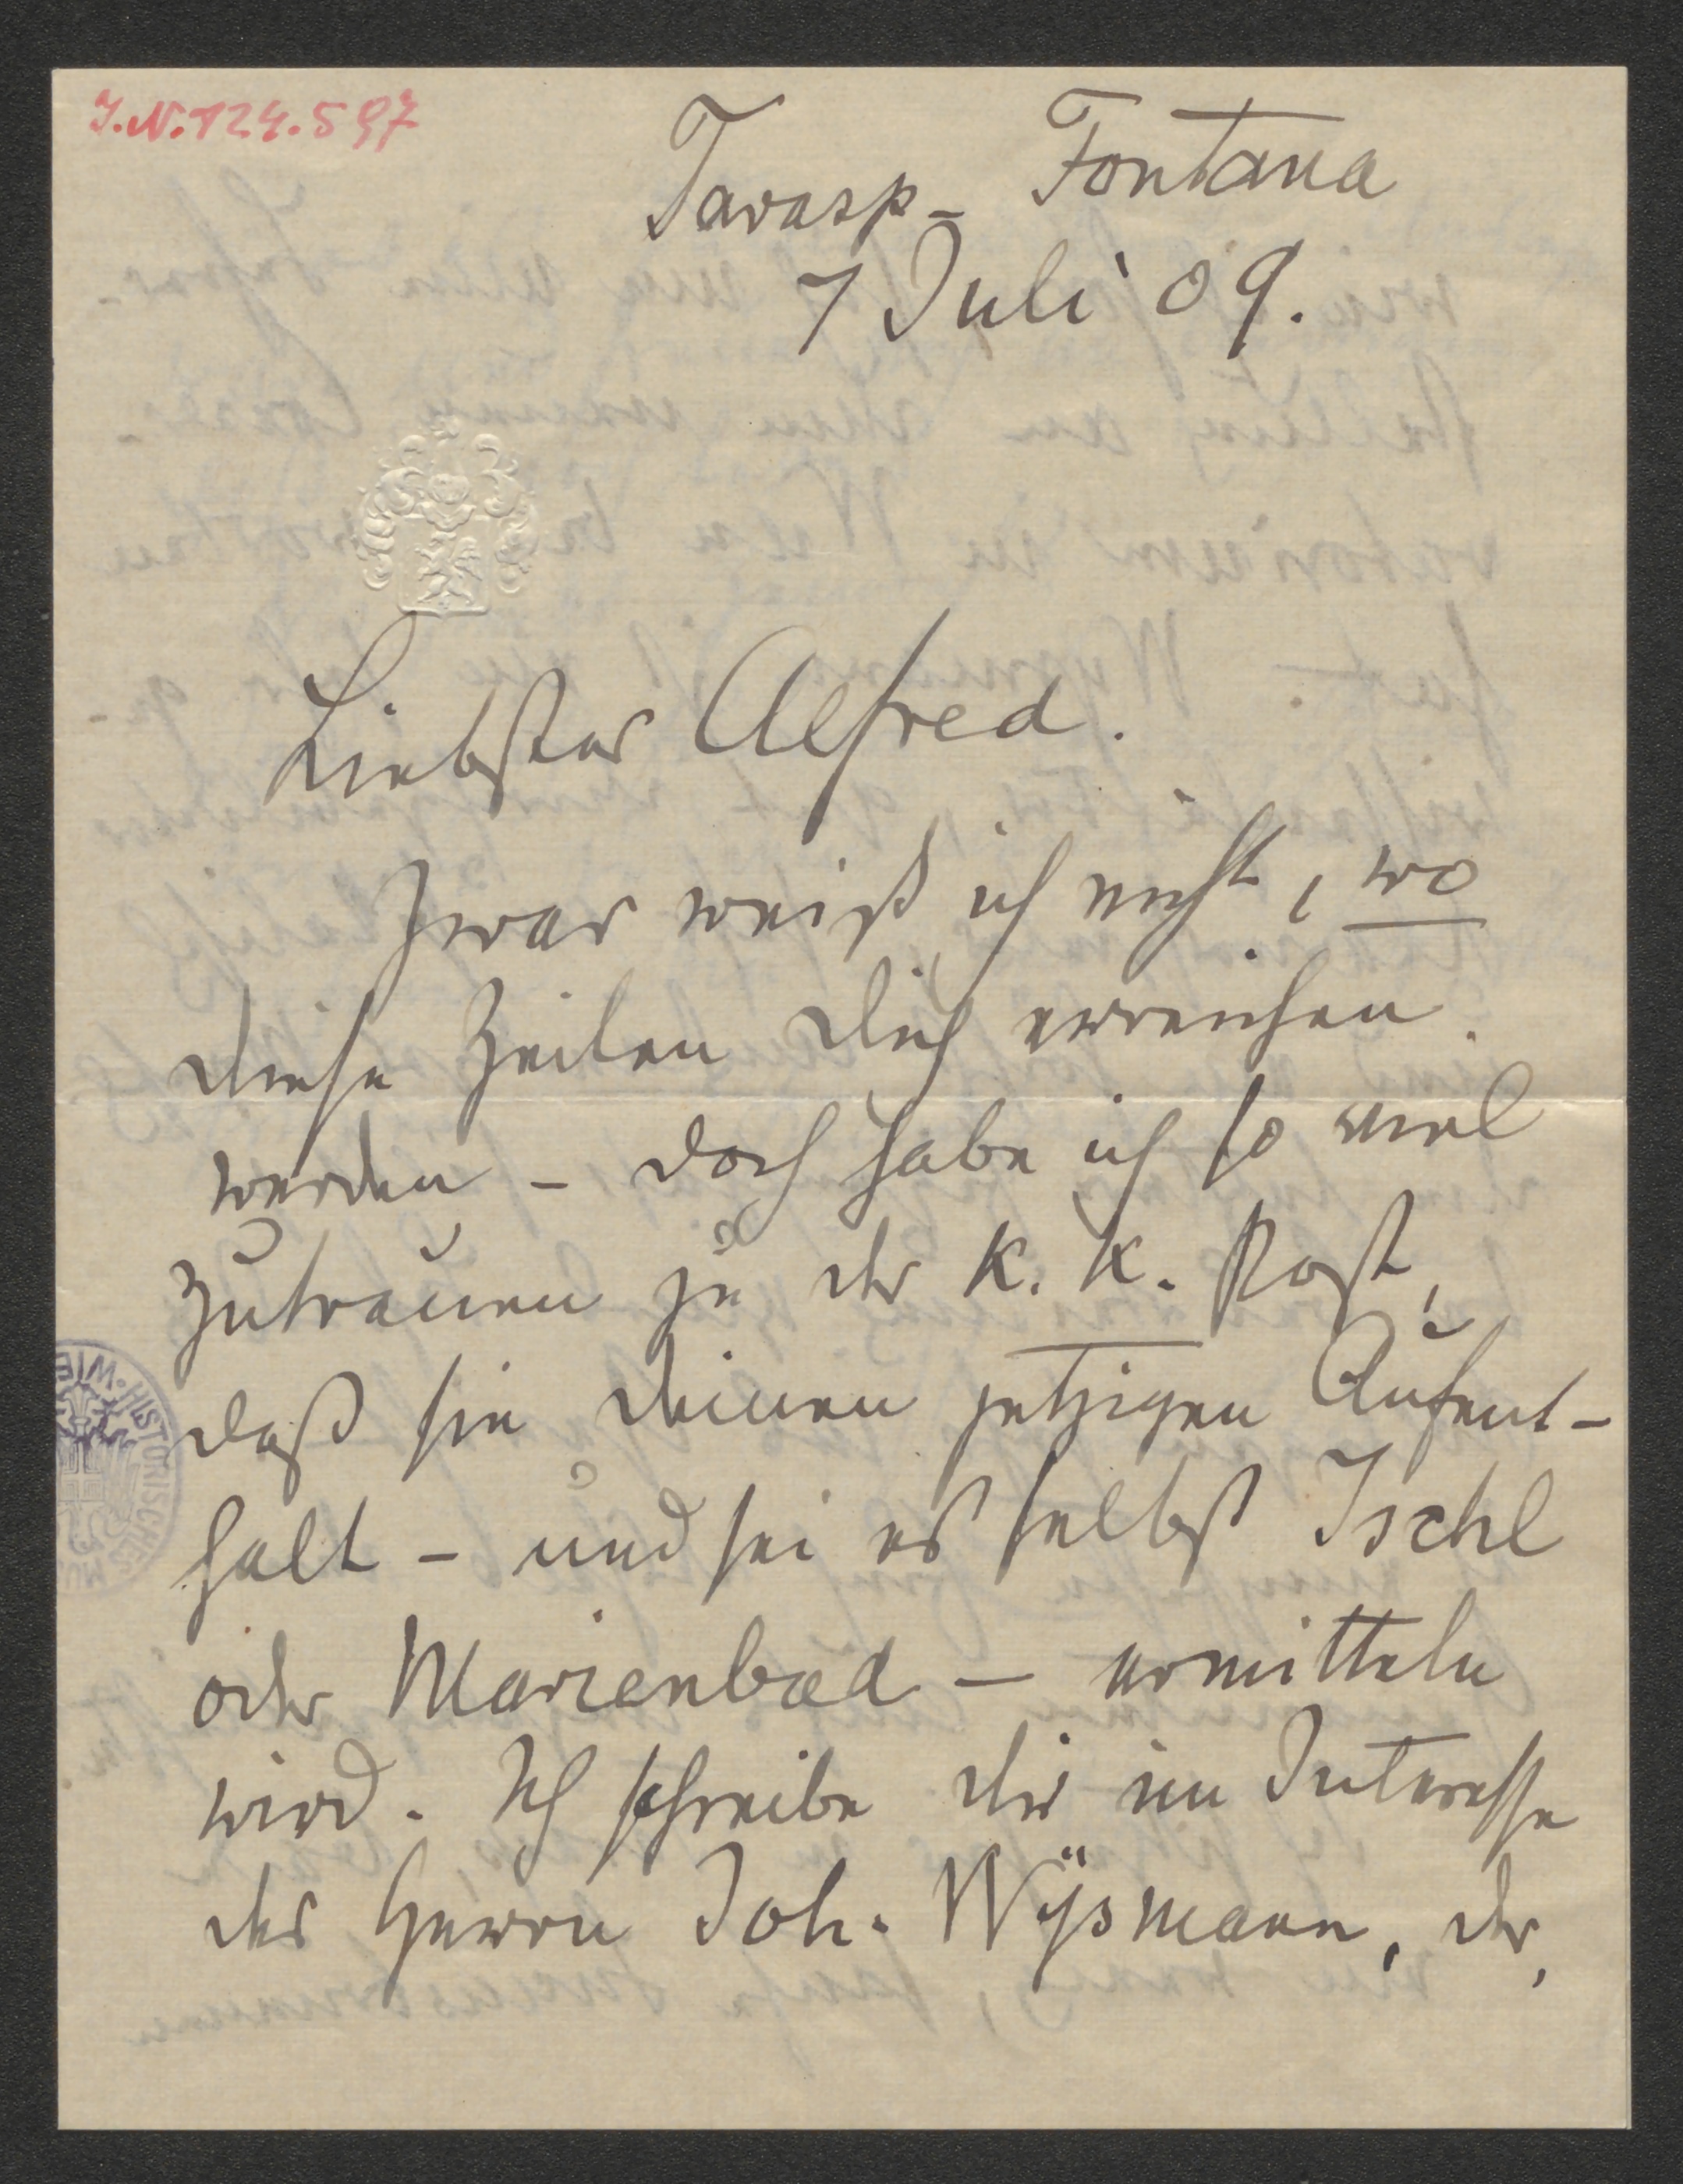 J.N. 124.597
Tarasp-Fontana
7 Juli 09.
Liebster Alfred.
Zwar weiß ich nicht, wo
diese Zeilen dich erreichen
werden – doch habe ich so viel
Zutrauen zu der K. K. Post,
daß sie deinen jetzigen Aufent-
halt – und sei es selbst Ischl
oder Marienbad – ermitteln
wird. Ich schreibe dir im Interesse
des Herrn Joh. Wÿsmann, der,